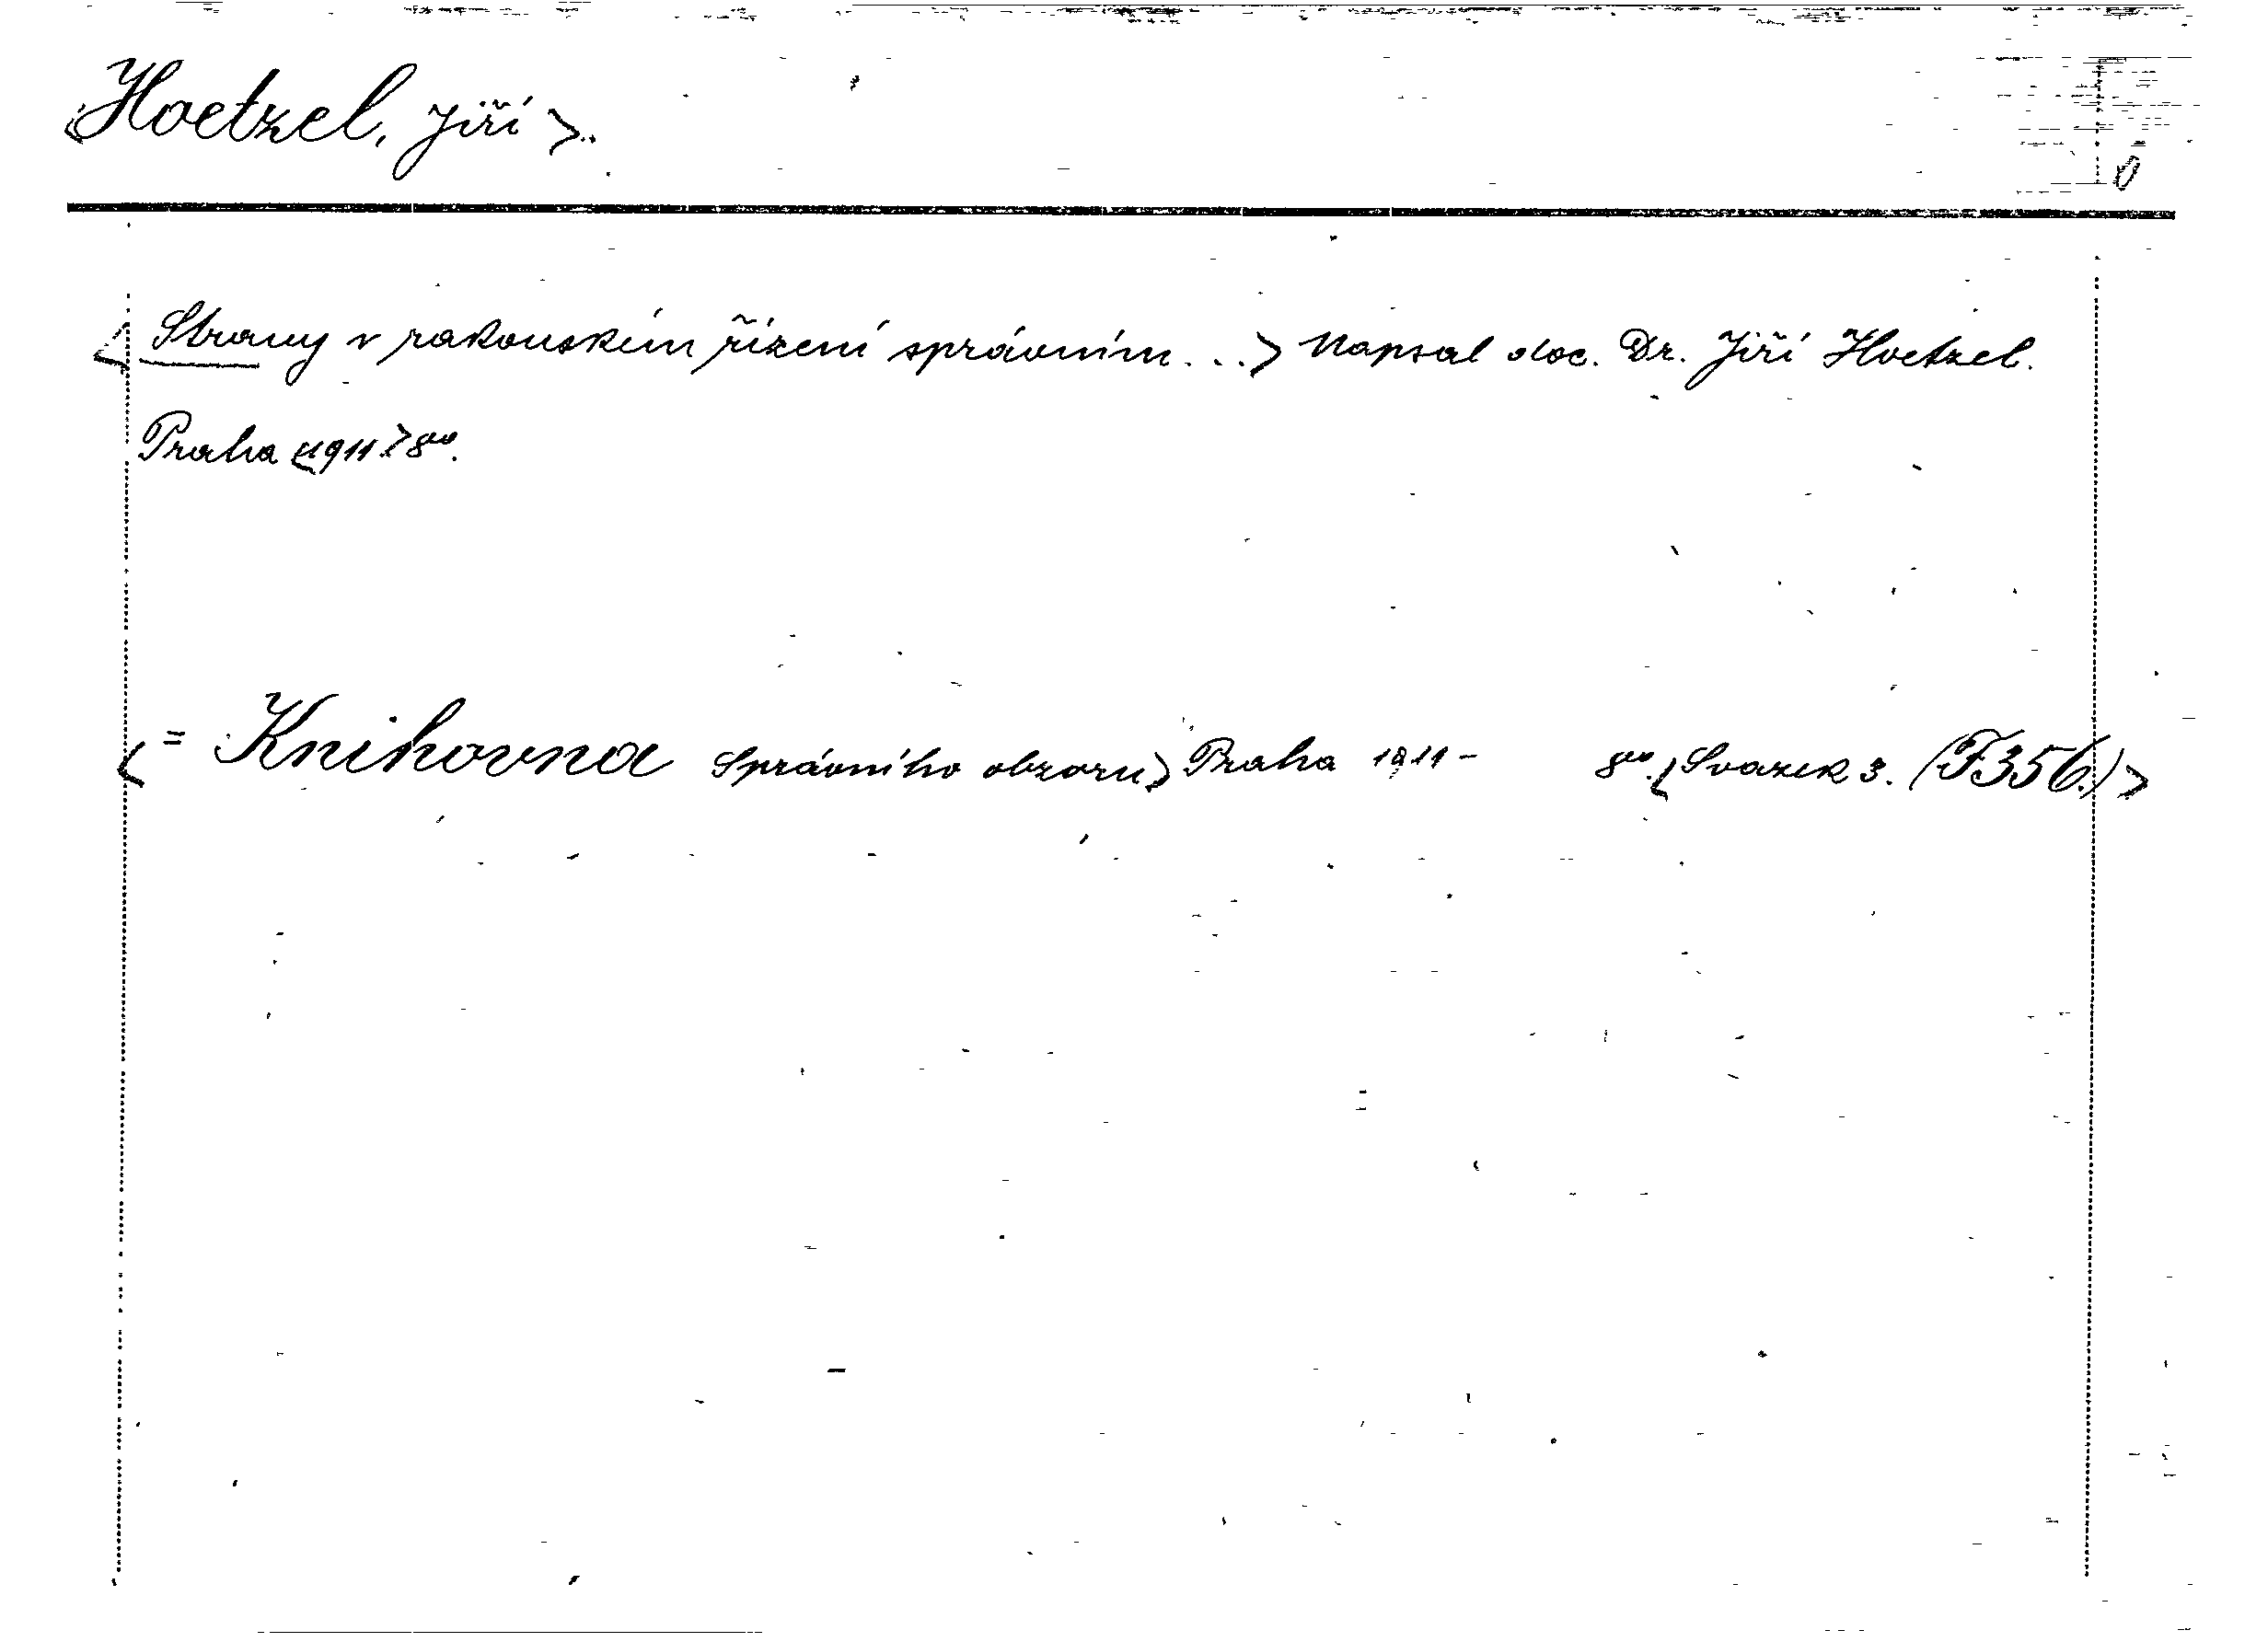 <Hoetzel, Jiří>.
<Strany v rakouském řízení správním...> Napsal doc. Dr. Jiří Hoetzel.
Praha <1911.> 8vo.
<= Knihovna Správního obzoru> Praha 1911- 8vo. <Svazek 3. (F356.)>